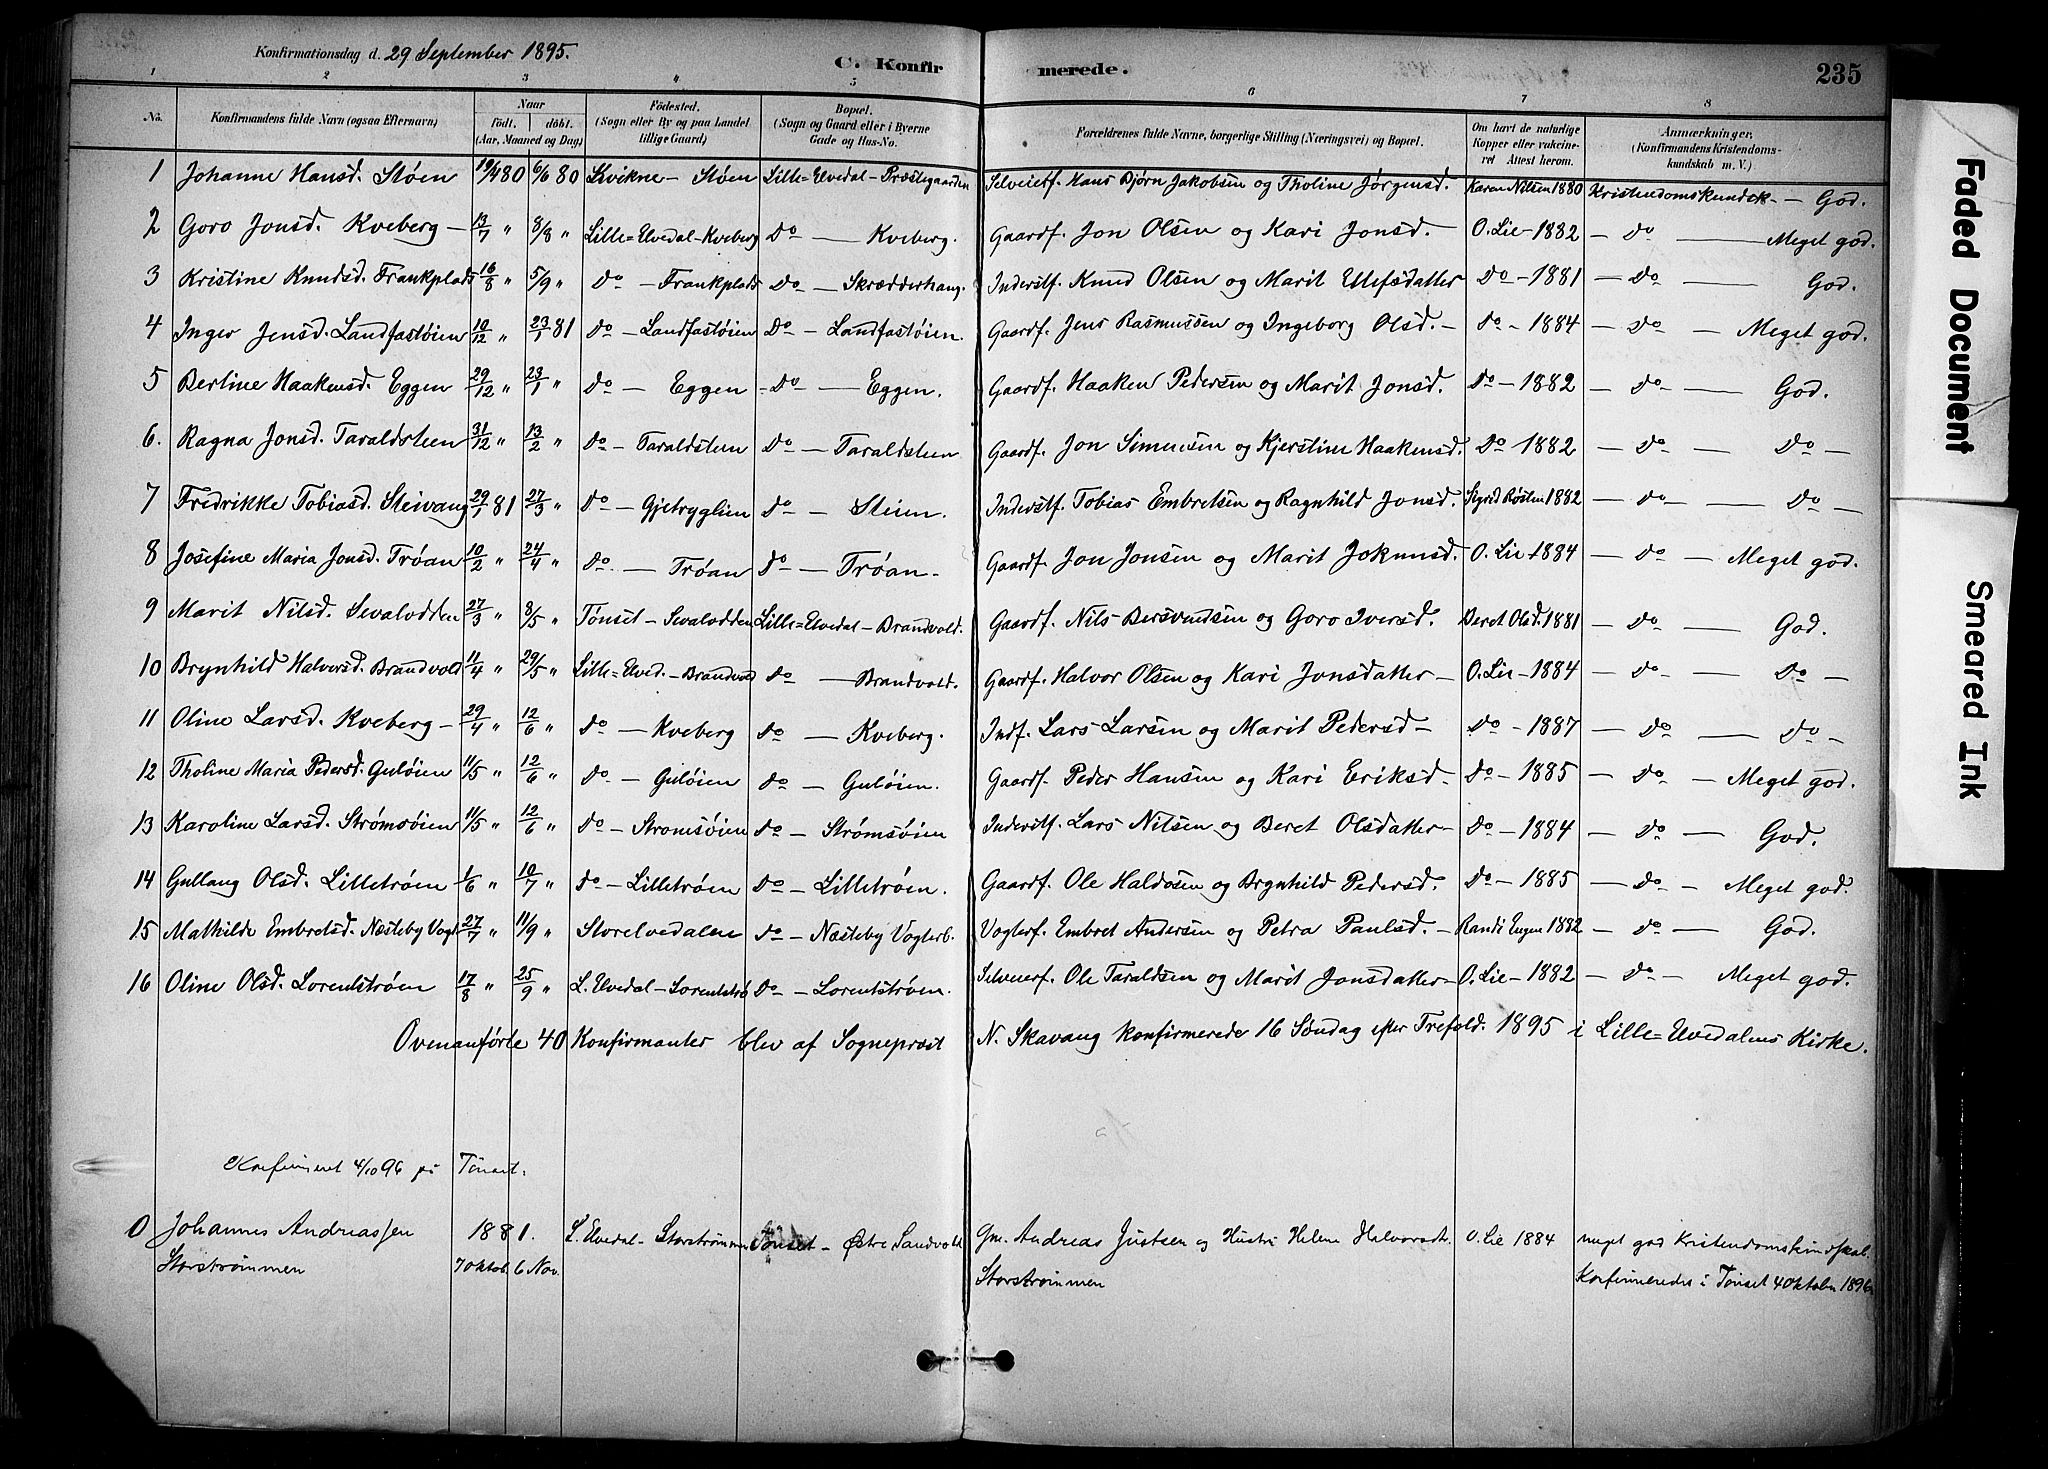 Konfirmationsdag d. 29 September 1895.
C. Konfirmerede.
235
1 2 3 4 5 6 7 8
No. Konfirmandens fulde Navn (ogsaa Efternavn) Naar födt. döbt. (Aar, Maaned og Dag) Födested. (Sogn eller By og paa Landet tillige Gaard) Bopæl. (Sogn og Gaard eller i Byerne Gade og Hus-No. Forældrenes fulde Navne, borgerlige Stilling (Næringsvei) og Bopæl. Om havt de naturlige Kopper eller vakcineret Attest herom. Anmærkninger. (Konfirmandens Kristendomskundskab m. V.)
1 Johanne Hansd. Støen 19/4 80 6/6 80 Kvikne - Støen Lille=Elvedal - Præstegaarden Selveierf. Hans Bjørn Jakobsen og Tholine Jørgensd. Karen Nilsen 1880 Kristendomskundsk. - God.
2 Goro Jonsd. Kveberg - 13/7 " 8/8 " Lille=Elvedal - Kveberg Do - Kveberg. Gaardf. Jon Olsen og Kari Jonsd. - O. Lie - 1882 - Do - Meget god.
3 Kristine Knudsd. Frankplads 16/8 " 5/9 " Do - Frankplads Do - Skrædderhaug. Inderstf. Knud Olsen og Marit Ellefsdatter Do - 1881 - Do God.
4 Inger Jensd. Landfastøien 10/12 " 23/1 81 Do - Landfastøien Do - Landfastøien. Gaardf. Jens Rasmussen og Ingeborg Olsd. - Do - 1884 - Do - Meget god.
5 Berline Haakensd. Eggen 29/12 " 23/1 " Do - Eggen Do - Eggen. Gaardf. Haaken Pedersen og Marit Jonsd. Do - 1882 - Do - God.
6. Ragna Jonsd. Taraldsteen 31/12 " 13/2 " Do - Taraldsteen Do - Taraldsteen Gaardf. Jon Simensen og Kjerstine Haakensd. Do - 1882 - Do - Do -
7 Fredrikke Tobiasd. Steivang 29/1 81 27/3 " Do - Gjetryglien Do - Steien. Inderstf. Tobias Embretsen og Ragnhild Jonsd. Sigrid Røsten 1882 - Do - Do -
8 Josefine Maria Jonsd. Trøan 10/2 " 24/4 " Do - Trøan Do - Trøan - Gaardf. Jon Jonsen og Marit Jokumsd. O. Lie - 1884 - Do - Meget god.
9 Marit Nilsd. Sevalodden 27/3 " 8/5 " Tønset - Sevalodden Lille=Elvedal - Brandvold. Gaardf. Nils Bersvendsen og Goro Iversd. Beret Olsd. 1881 - Do - God.
10 Brynhild Halversd. Brandvold 11/4 " 29/5 " Lille=Elved. - Brandvold Do - Brandvold. Gaardf. Halvor Olsen og Kari Jonsdatter - O. Lie - 1884 - Do - Do -
11 Oline Larsd. Kveberg - 29/4 " 12/6 " Do - Kveberg Do - Kveberg. Indf. Lars Larsen og Marit Pedersd - Do - 1887 - Do - Do -
12 Tholine Maria Pedersd. Guløien 11/5 " 12/6 " Do - Guløien Do - Guløien. Gaardf. Peder Hansen og Kari Eriksd - Do - 1885 - Do - Meget god.
13 Karoline Larsd. Strømsøien 11/5 " 12/6 " Do - Stromsøien Do - Strømsøien Inderstf. Lars Nilsen og Beret Olsdatter - Do - 1884 - Do - God.
14 Gullaug Olsd. Lilletrøen 1/6 " 10/7 " Do - Lilletrøen Do - Lilletrøen. Gaardf. Ole Haldosen og Brynhild Pedersd. Do - 1885 - Do - Meget god.
15 Mathilde Embretsd. Næsteby Vogt 27/7 " 11/9 " Storelvedalen Do - Næsteby Vogterb. Vogterf. Embret Andersen og Petra Paulsd. - Randi Engen 1882 - Do - God.
16 Oline Olsd. Lorentstrøen 17/8 " 25/9 " L. Elvedal - Lorentstrø Do - Lorentstrøen. Selveierf. Ole Taraldsen og Marit Jonsdatter - O. Lie - 1882 - Do - Meget god.
Ovenanførte 40 Konfirmanter blev af Sognepræst N. Skavang konfirmerede 16 Søndag efter Trefold. 1895 i Lille=Elvedalens Kirke.
Konfirmeret 4/10 96 på Tönset.
0 Johannes Andreassen 1881. L. Elvedal - Storstrømmen Tönset - Østre Sandvold Gm. Andreas Justsen og Hustru Helene Halvorsdt. O. Lie 1884 meget god Kristendomskundskab.
Storstrømmen 7 Oktob. 6 Nov. Storstrømmen Konfirmeredes i Tönset 4 Oktober 1896
Faded Document
Smeared Ink